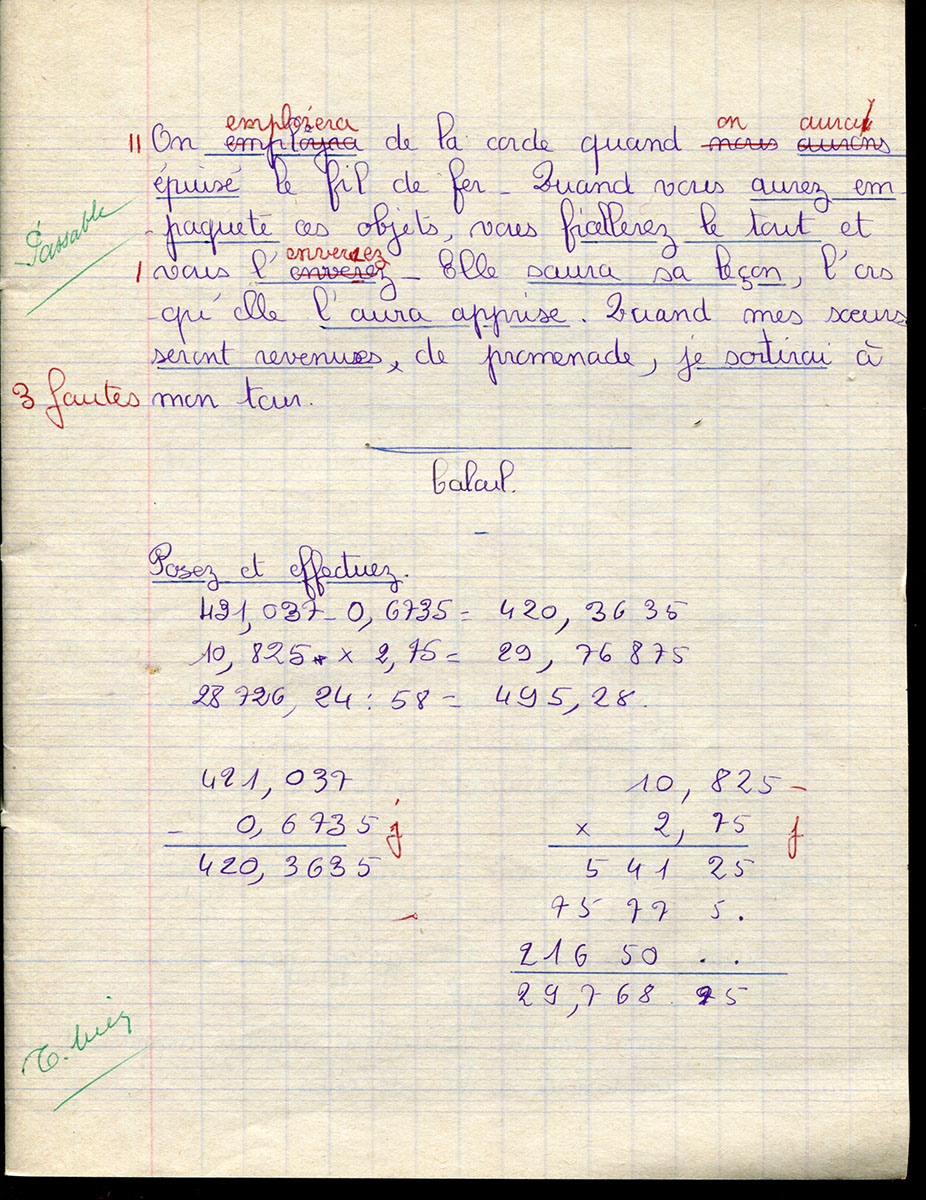 emploiera on aura
II On employra de la corde quand nous aurons
épuisé le fil de fer - Quand vous aurez em-
Passable
-paqueté ces objets, vous ficellerez le tout et
enverrez
I vous l'enverez - Elle saura sa leçon, l'ors
-qu'elle l'aura apprise. Quand mes sœurs
seront revenues, de promenade, je sortirai à
3 fautes mon tour.
Calcul.
-
Posez et effectuez.
421,037 - 0,6735 = 420,3635
10,825 x 2,75 = 29,76875
28726,24 : 58 = 495,28.
421,037 10,825
- 0,6735 j x 2,75 j
420,3635 5 41 25
75 77 5.
216 50 . .
29,768 75
T. bien